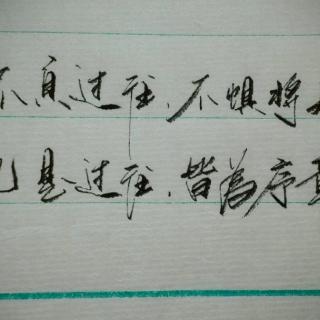 不息过往、不惧将
凡是过往、皆为序